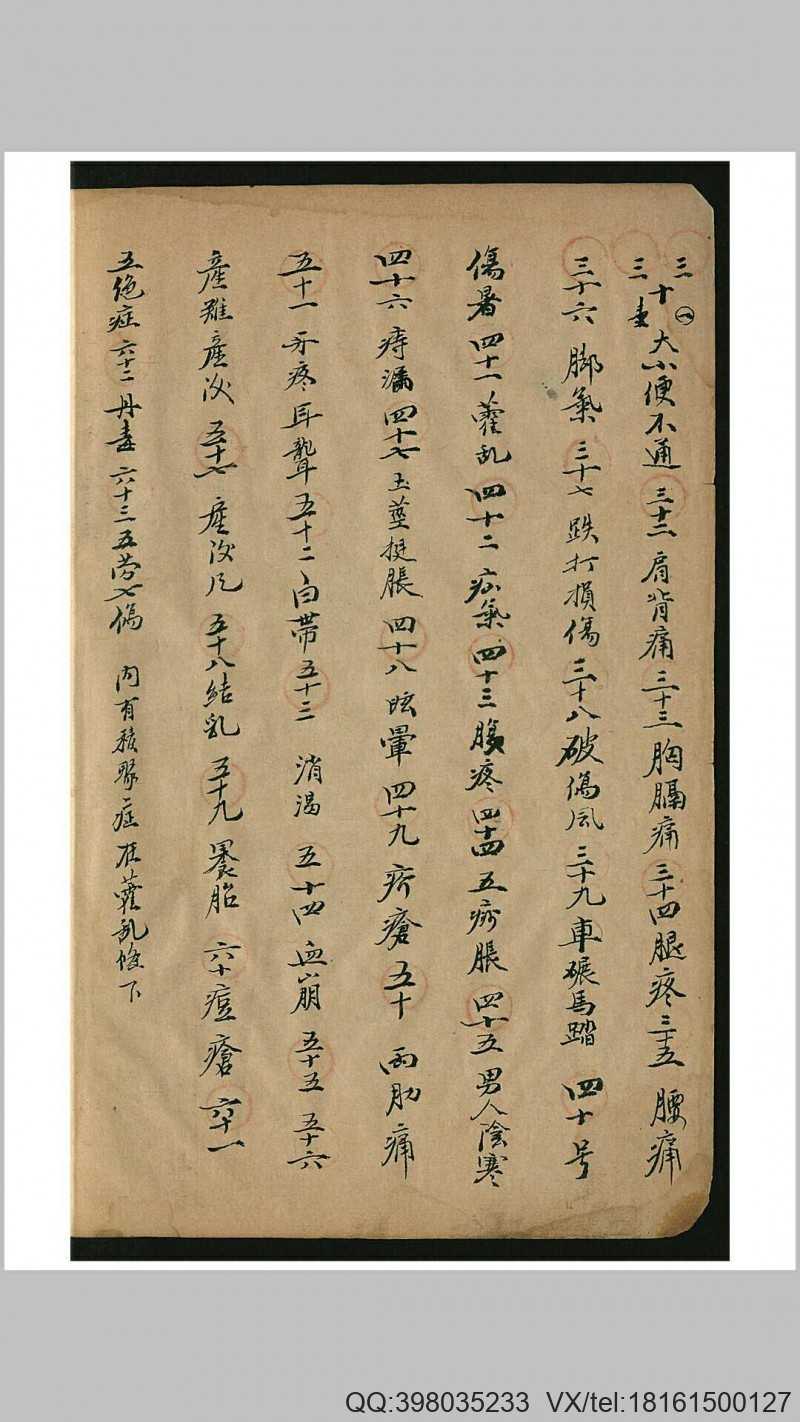 三十㊀ 大小便不通 三十二 肩背痛 三十三 胸膈痛 三十四 腿疼 三十五 腰痛
三十六 脚氣 三十七 跌打損傷 三十八 破傷風 三十九 車碾馬踏 四十号
傷暑 四十一 藿乱 四十二 疝氣 四十三 腹疼 四十四 五痨脹 四十五 男人陰寒
四十六 痔漏 四十七 玉莖挺脹 四十八 眩暈 四十九 疥瘡 五十 两肋痛
五十一 牙疼耳聾 五十二 白帶 五十三 消渴 五十四 血崩 五十五 五十六
産難産后 五十七 産後 五十八 結乳 五十九 胎 六十 痘瘡 六十一
五絶症 六十二 丹毒 六十三 五劳七傷 内有積聚症在藿乱條下
QQ:398035233 VX/tel:18161500127